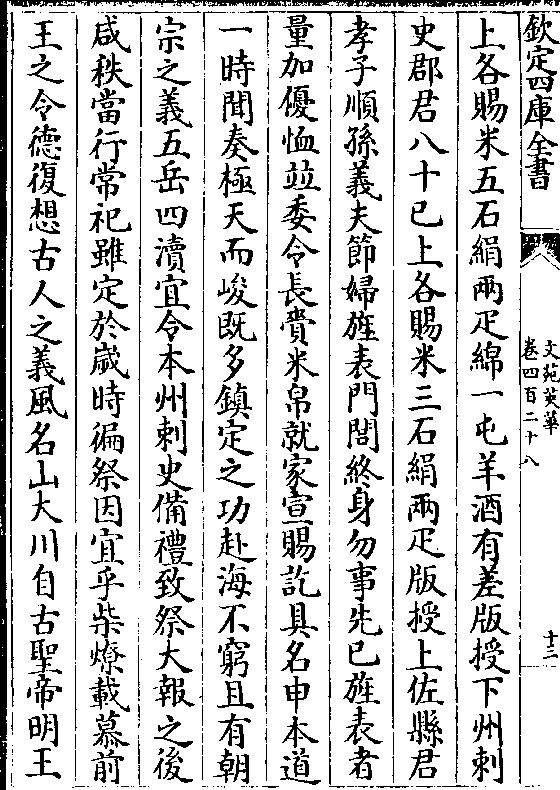 欽定四庫全書
文苑英華
卷四百二十八
十三
上各賜米五石絹兩疋綿一屯羊酒有差版授下州刺
史郡君八十已上各賜米三石絹兩疋版授上佐縣君
孝子順孫義夫節婦旌表門閭終身勿事先已旌表者
量加優恤並委令長賫米帛就家宣賜訖具名申本道
一時聞奏極天而峻既多鎮定之功赴海不窮且有朝
宗之義五岳四瀆宜令本州刺史備禮致祭大報之後
咸秩當行常祀雖定於歲時徧祭因宜乎柴燎載慕前
王之令德復想古人之義風名山大川自古聖帝明王